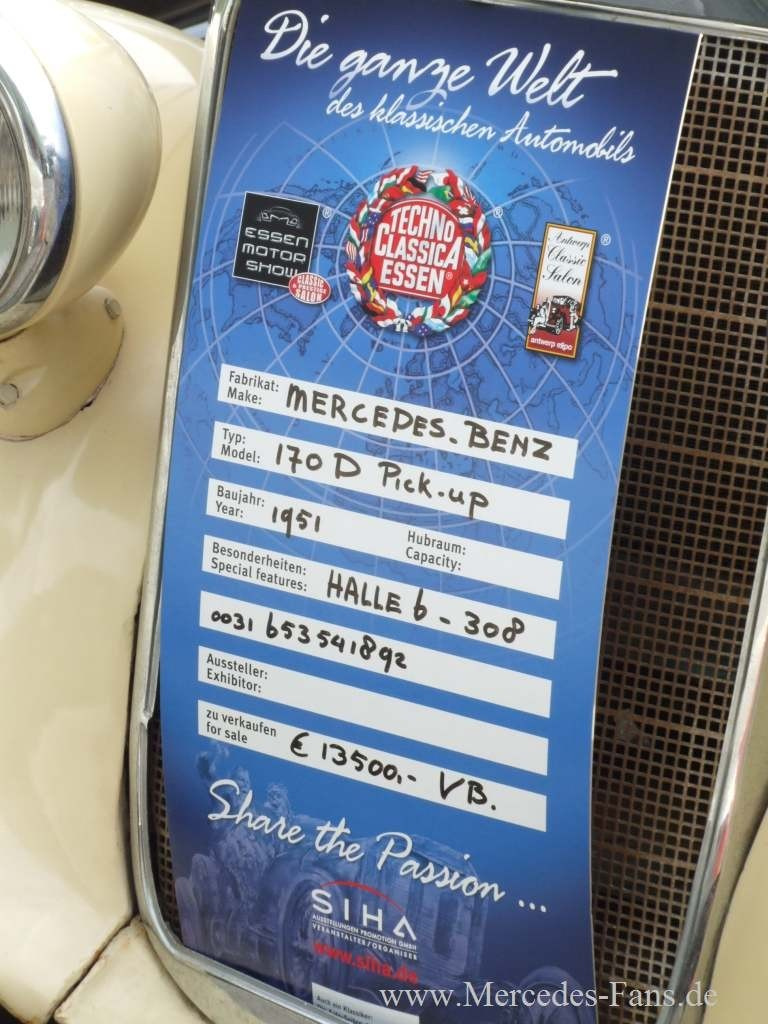 Die ganze Welt
des klassischen Automobils
ESSEN
MOTOR
SHOW
CLASSIC
& PRESTIGE
SALON
®
TECHNO
CLASSICA
ESSEN®
®
Antwerp
Classic
Salon
antwerp expo
®
Fabrikat:
Make: MERCEDES-BENZ
Typ:
Model: 170 D Pick-up
Baujahr:
Year: 1951
Hubraum:
Capacity:
Besonderheiten:
Special features: HALLE 6 - 308
0031 653541892
Aussteller:
Exhibitor:
zu verkaufen
for sale € 13500,- VB.
Share the Passion ...
SIHA
AUSSTELLUNGEN PROMOTION GMBH
VERANSTALTER/ORGANISER
www.siha.de
Auch ein Klassiker:
www.Mercedes-Fans.de